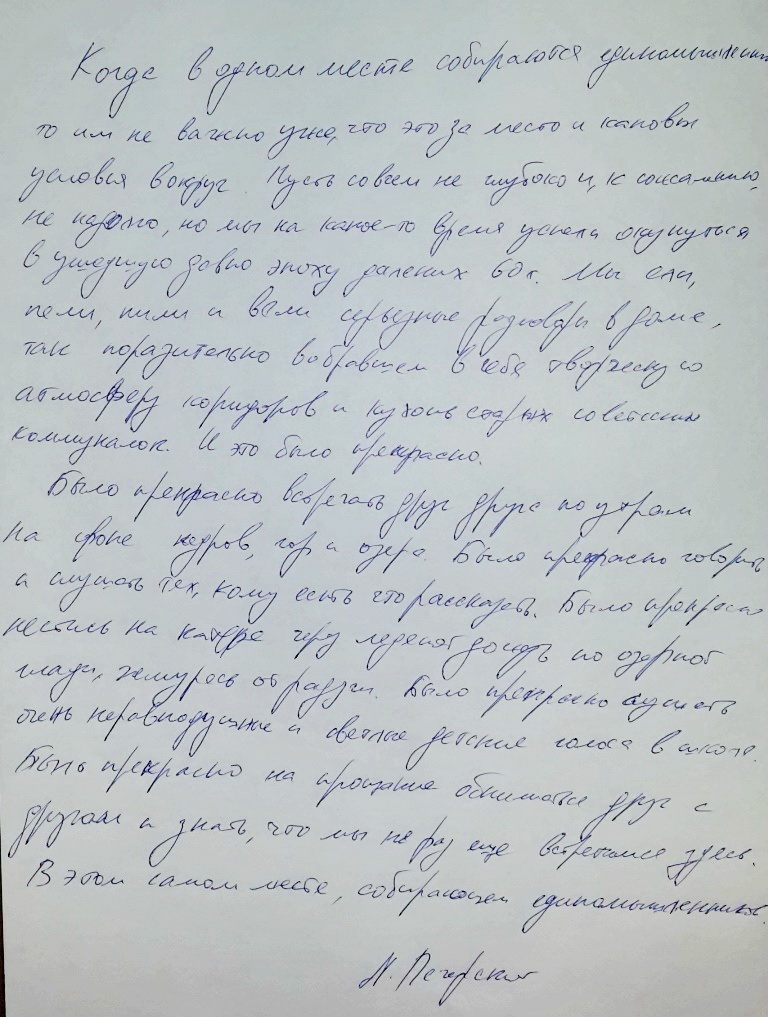 Когда в одном месте собираются единомышленники
то им не важно уже, что это за место и каковы
условия вокруг. Пусть совсем не глубоко и, к сожалению,
не надолго, но мы на какое-то время успели окунуться
в ушедшую давно эпоху далеких 60х. Мы ели,
пели, пили и вели серьезные разговоры в доме,
так поразительно вобравшем в себя творческую
атмосферу коридоров и кухонь старых советских
коммуналок. И это было прекрасно.
Было прекрасно встречать друг друга по утрам
на фоне кедров, гор и озера. Было прекрасно говорить
и слушать тех, кому есть что рассказать. Было прекрасно
нестись на катере через ледяной дождь по озерной
глади, жмурясь от радуги. Было прекрасно слушать
очень неравнодушные и светлые детские голоса в школе.
Было прекрасно на прощание обниматься друг с
другом и знать, что мы не раз еще встретимся здесь.
В этом самом месте, собирающем единомышленников.
Печерский